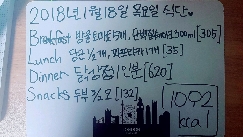 2018년 1월 18일 목요일 식단♥
Breakfast 방울토마토 1개, 300ml [305]
Lunch 당근 1/2개, 1개 [35]
Dinner 닭 1인분 [620]
Snacks 두부 [132]
1092
kcal